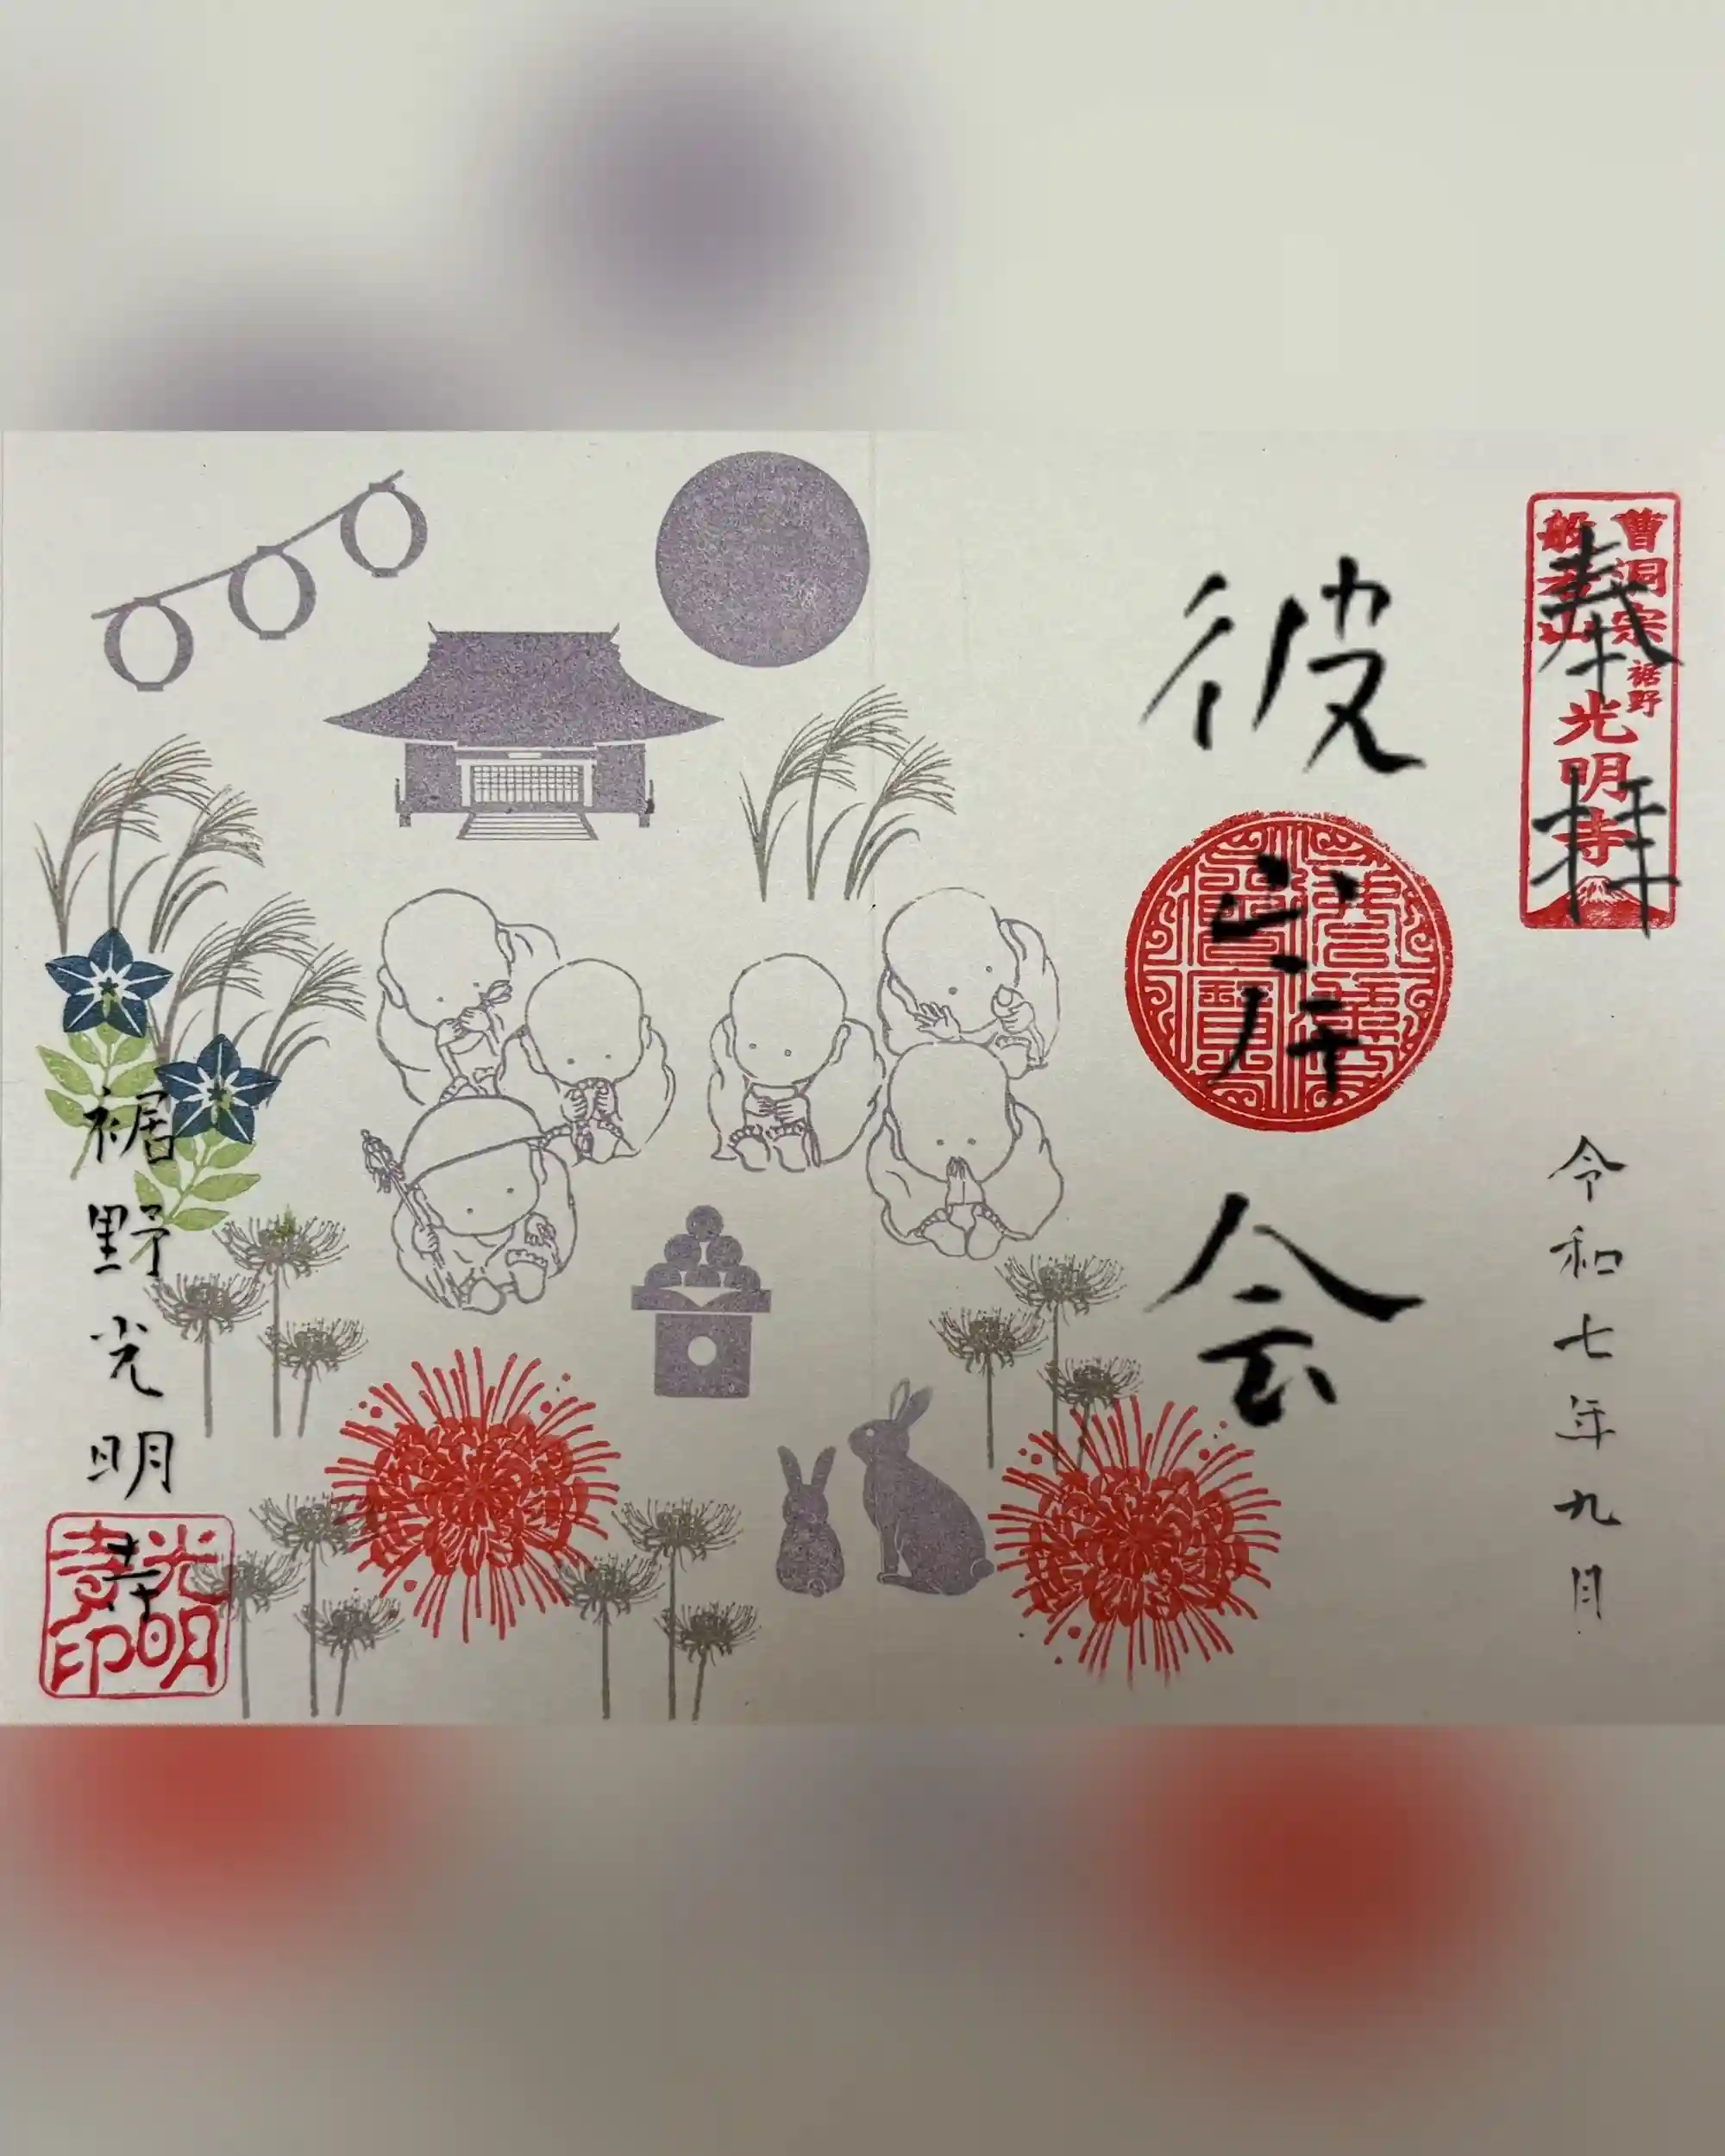 奉拝
曹洞宗
般若山
裾野
光明寺
令和七年九月
彼岸会
裾野光明寺
光明寺印